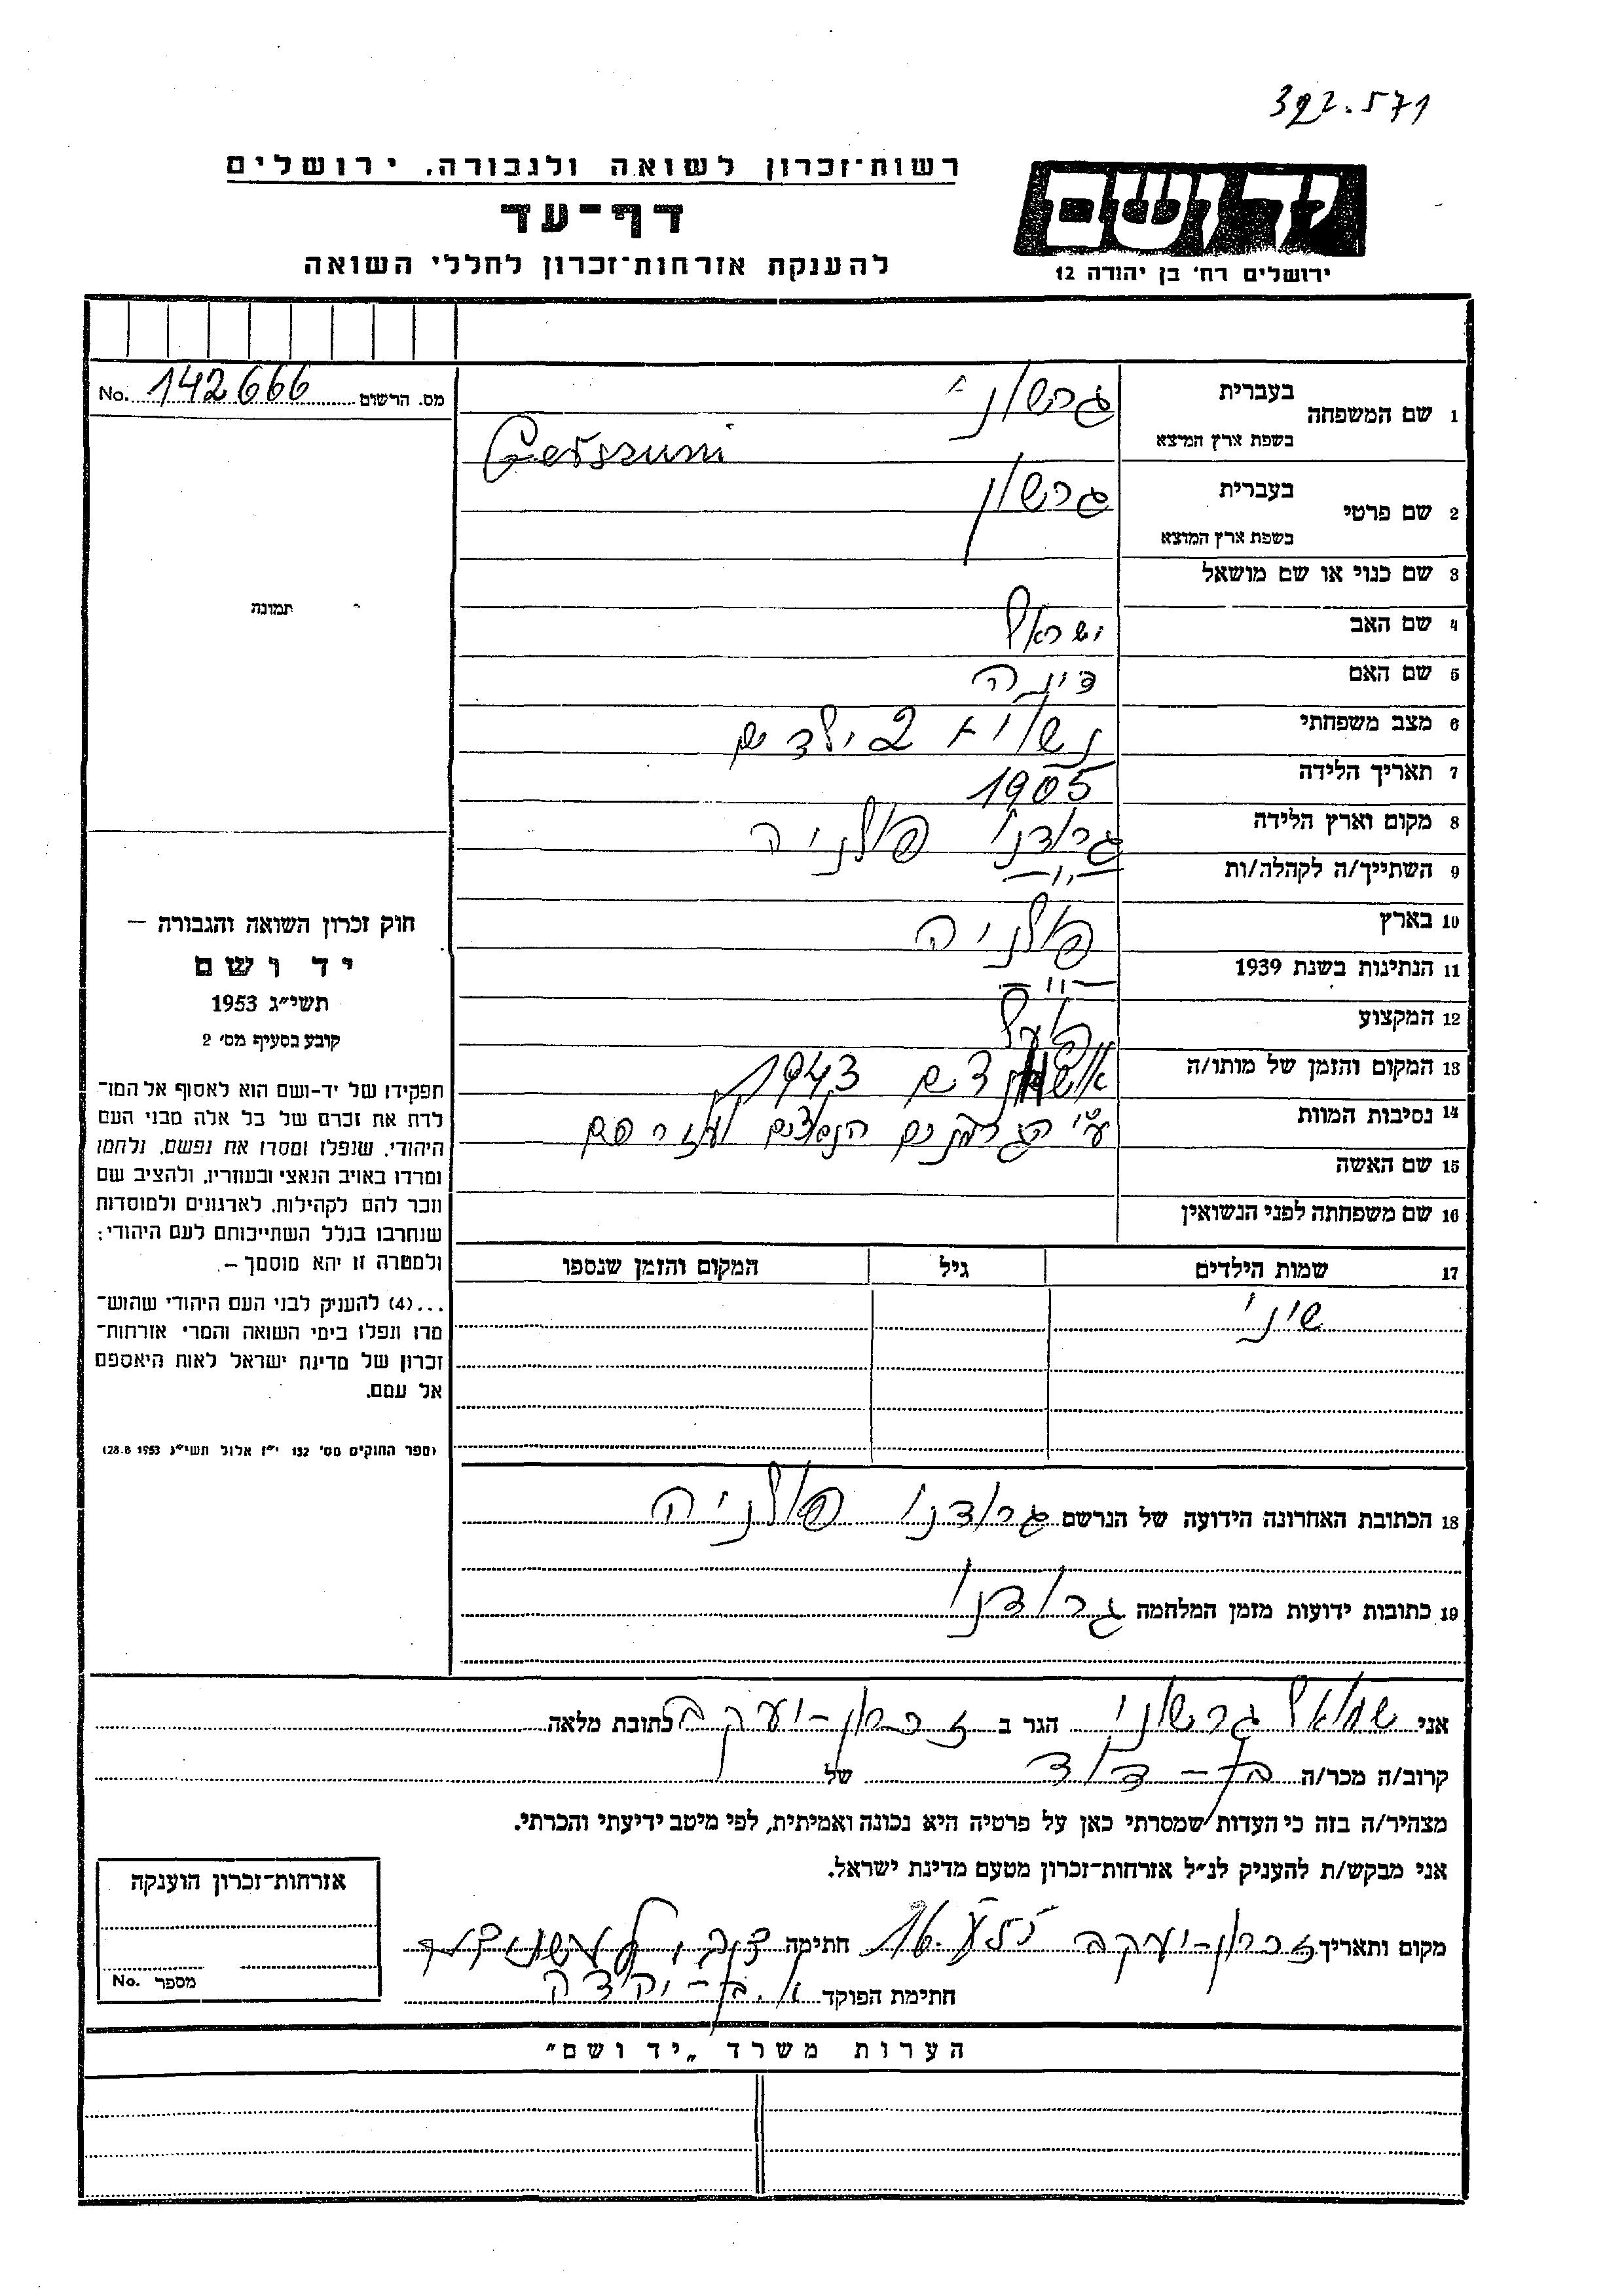 392.571
רשות־זכרון לשואה ולגבורה, ירושלים
יד ושם
דף־עד
להענקת אזרחות־זכרון לחללי השואה
ירושלים רח' בן יהודה 12
מס. הרשום 142666 No.
1 שם המשפחה בעברית גרשוני
בשפת ארץ המוצא Gerszuni
2 שם פרטי בעברית גרשון
בשפת ארץ המוצא
3 שם כנוי או שם מושאל
תמונה
4 שם האב ישראל
5 שם האם דינה
6 מצב משפחתי נשוי א 2 ילדים
7 תאריך הלידה 1905
8 מקום וארץ הלידה גרודנו פולניה
9 השתייך/ה לקהלה/ות —״—
10 בארץ פולניה
11 הנתינות בשנת 1939 —״—
12 המקצוע פועל
13 המקום והזמן של מותו/ה 1943
14 נסיבות המוות ע"י הגרמנים הנאצים ועוזריהם
15 שם האשה
16 שם משפחתה לפני הנשואין
17 שמות הילדים גיל המקום והזמן שנספו
שיני
חוק זכרון השואה והגבורה –
יד ושם
תשי״ג 1953
קובע בסעיף מס' 2
תפקידו של יד-ושם הוא לאסוף אל המו־
לדת את זכרם של כל אלה מבני העם
היהודי, שנפלו ומסרו את נפשם, נלחמו
ומרדו באויב הנאצי ובעוזריו, ולהציב שם
וזכר להם לקהילות, לארגונים ולמוסדות
שנחרבו בגלל השתייכותם לעם היהודי;
ולמטרה זו יהא מוסמך –
...(4) להעניק לבני העם היהודי שהוש־
מדו ונפלו בימי השואה והמרי אזרחות־
זכרון של מדינת ישראל לאות היאספם
אל עמם.
(ספר החוקים מס' 132 י״ז אלול תשי״ג 28.8 1953)
18 הכתובת האחרונה הידועה של הנרשם גרודנו פולניה
19 כתובות ידועות מזמן המלחמה גרודנו
אני שמואל גרשוני הגר ב זכרון-יעקב כתובת מלאה
קרוב/ה מכר/ה בן-דוד של
מצהיר/ה בזה כי העדות שמסרתי כאן על פרטיה היא נכונה ואמיתית, לפי מיטב ידיעתי והכרתי.
אני מבקש/ת להעניק לנ״ל אזרחות־זכרון מטעם מדינת ישראל.
מקום ותאריך זכרון-יעקב 16. חתימה
חתימת הפוקד
אזרחות־זכרון הוענקה
מספר No.
הערות משרד „יד ושם"